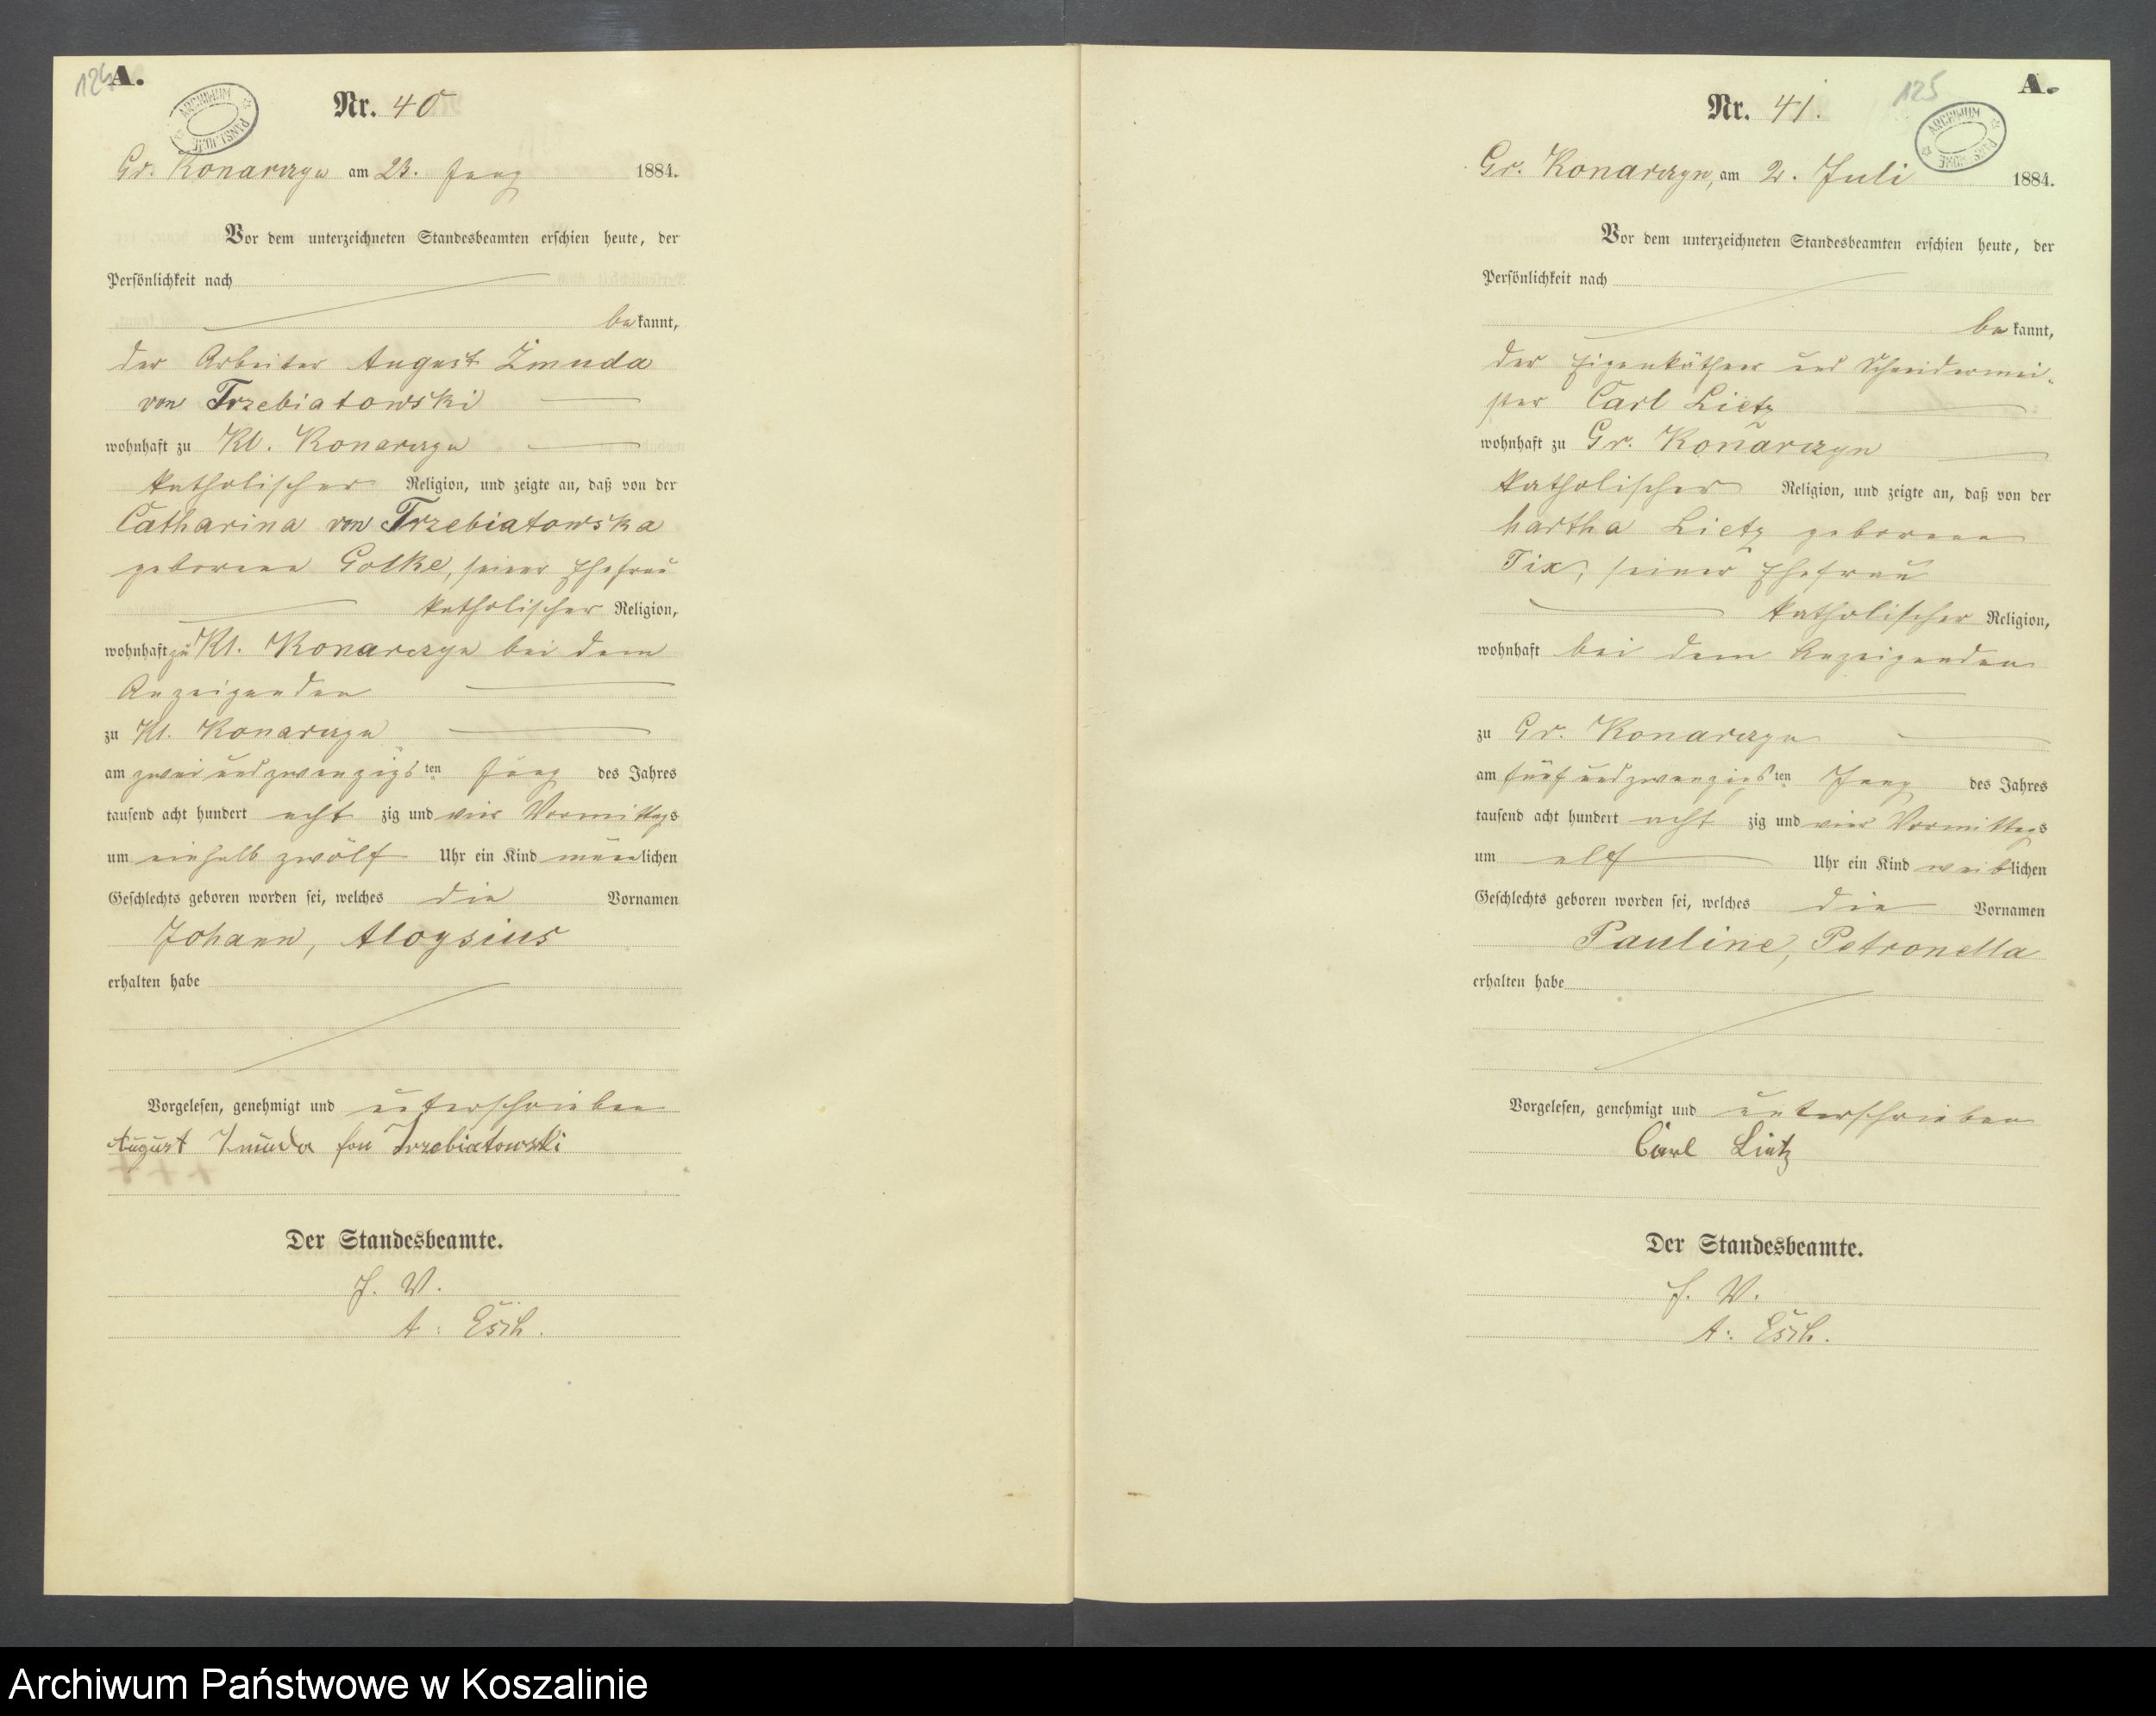 124
A.
ARCHIWUM PAŃSTWOWE
Nr. 40
Gr. Konarczyn am 23. Juny 1884.
Vor dem unterzeichneten Standesbeamten erschien heute, der
Persönlichkeit nach
bekannt,
der Arbeiter August Żmuda
von Trzebiatowski
wohnhaft zu Kl. Konarczyn
katholischer Religion, und zeigte an, daß von der
Catharina von Trzebiatowska
geborene Golke, seiner Ehefrau
katholischer Religion,
wohnhaft zu Kl. Konarczyn bei dem
Anzeigenden
zu Kl. Konarczyn
am zwei und zwanzigsten Juny des Jahres
tausend acht hundert acht zig und vier Vormittags
um einhalb zwölf Uhr ein Kind männlichen
Geschlechts geboren worden sei, welches die Vornamen
Johann, Aloysius
erhalten habe
Vorgelesen, genehmigt und unterschrieben
August Zmuda fon Trzebiatowski
Der Standesbeamte.
J. V.
A. Esch.
125
A.
ARCHIWUM PAŃSTWOWE
Nr. 41.
Gr. Konarczyn, am 2. Juli 1884.
Vor dem unterzeichneten Standesbeamten erschien heute, der
Persönlichkeit nach
bekannt,
der Eigenkäthner und Schneidermei-
ster Carl Lietz
wohnhaft zu Gr. Konarczyn
katholischer Religion, und zeigte an, daß von der
Martha Lietz geborene
Tix, seiner Ehefrau
katholischer Religion,
wohnhaft bei dem Anzeigenden
zu Gr. Konarczyn
am fünf und zwanzigsten Juny des Jahres
tausend acht hundert acht zig und vier Vormittags
um elf Uhr ein Kind weiblichen
Geschlechts geboren worden sei, welches die Vornamen
Pauline, Petronella
erhalten habe
Vorgelesen, genehmigt und unterschrieben
Carl Lietz
Der Standesbeamte.
J. V.
A. Esch.
Archiwum Państwowe w Koszalinie